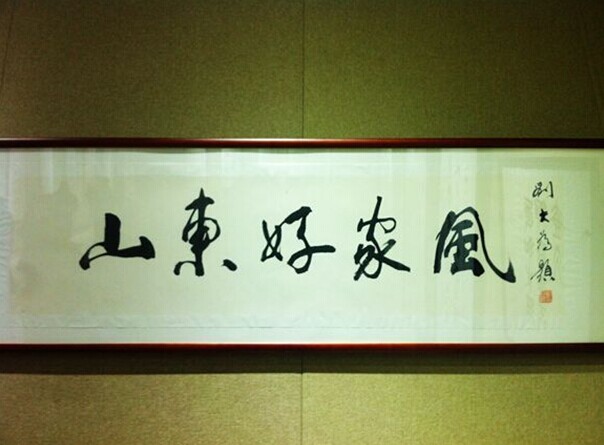 山東好家風
劉大為題